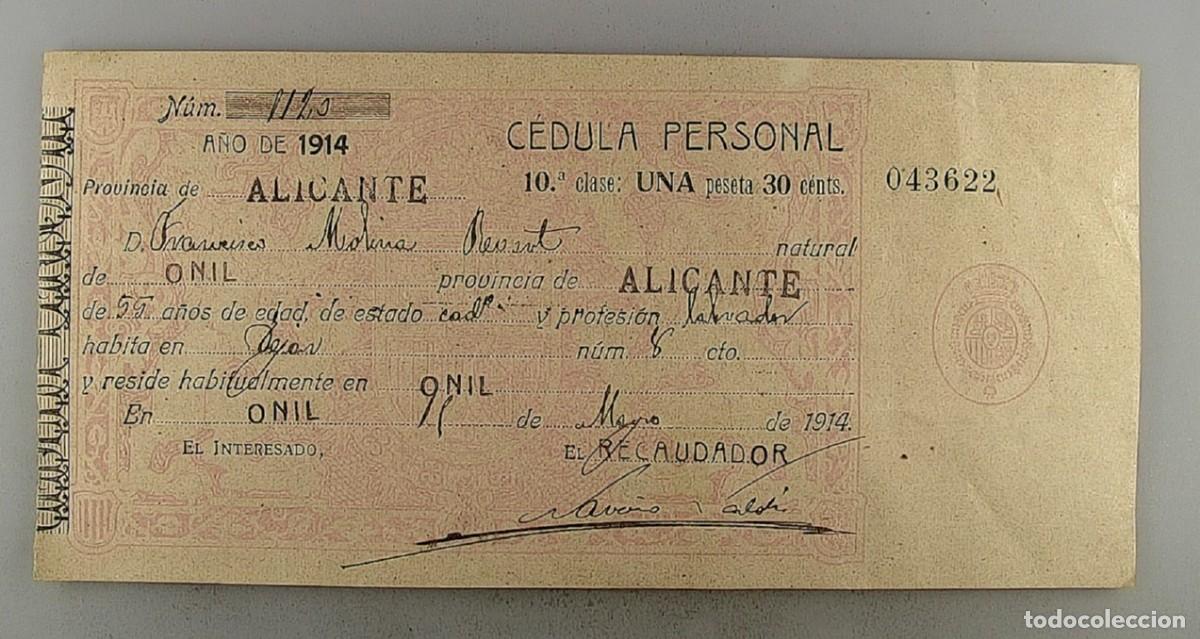 Núm. 1120
AÑO DE 1914
CÉDULA PERSONAL
Provincia de ALICANTE 10.ª clase: UNA peseta 30 cénts. 043622
D. Francisco Molina natural
de ONIL provincia de ALICANTE
de 55 años de edad, de estado y profesión labrador
habita en núm. 8 cto.
y reside habitualmente en ONIL
En ONIL de Mayo de 1914.
EL INTERESADO, EL RECAUDADOR
todocoleccion